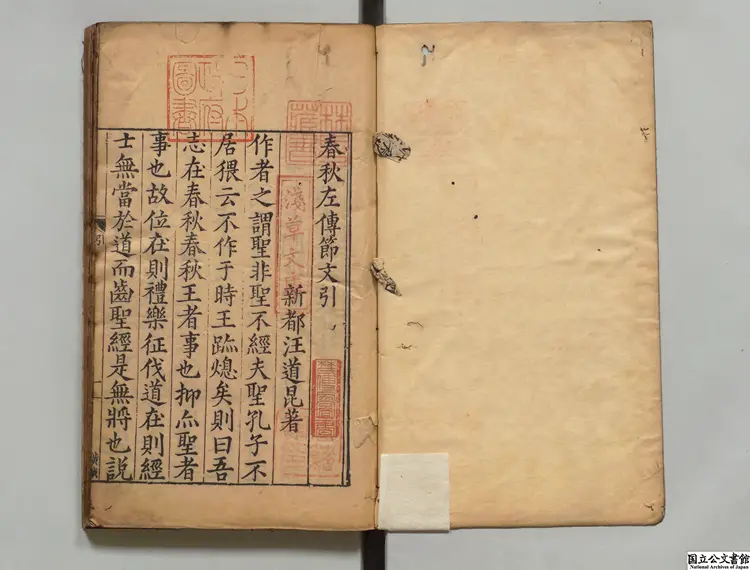 春秋左傳節文引
新都汪道昆著
作者之謂聖非聖不經夫聖孔子不
居猥云不作于時王跡熄矣則曰吾
志在春秋春秋王者事也抑亦聖者
事也故位在則禮樂征伐道在則經
士無當於道而齒聖經是無將也説
引
淺草文庫
日本政府圖書
国立公文書館
National Archives of Japan